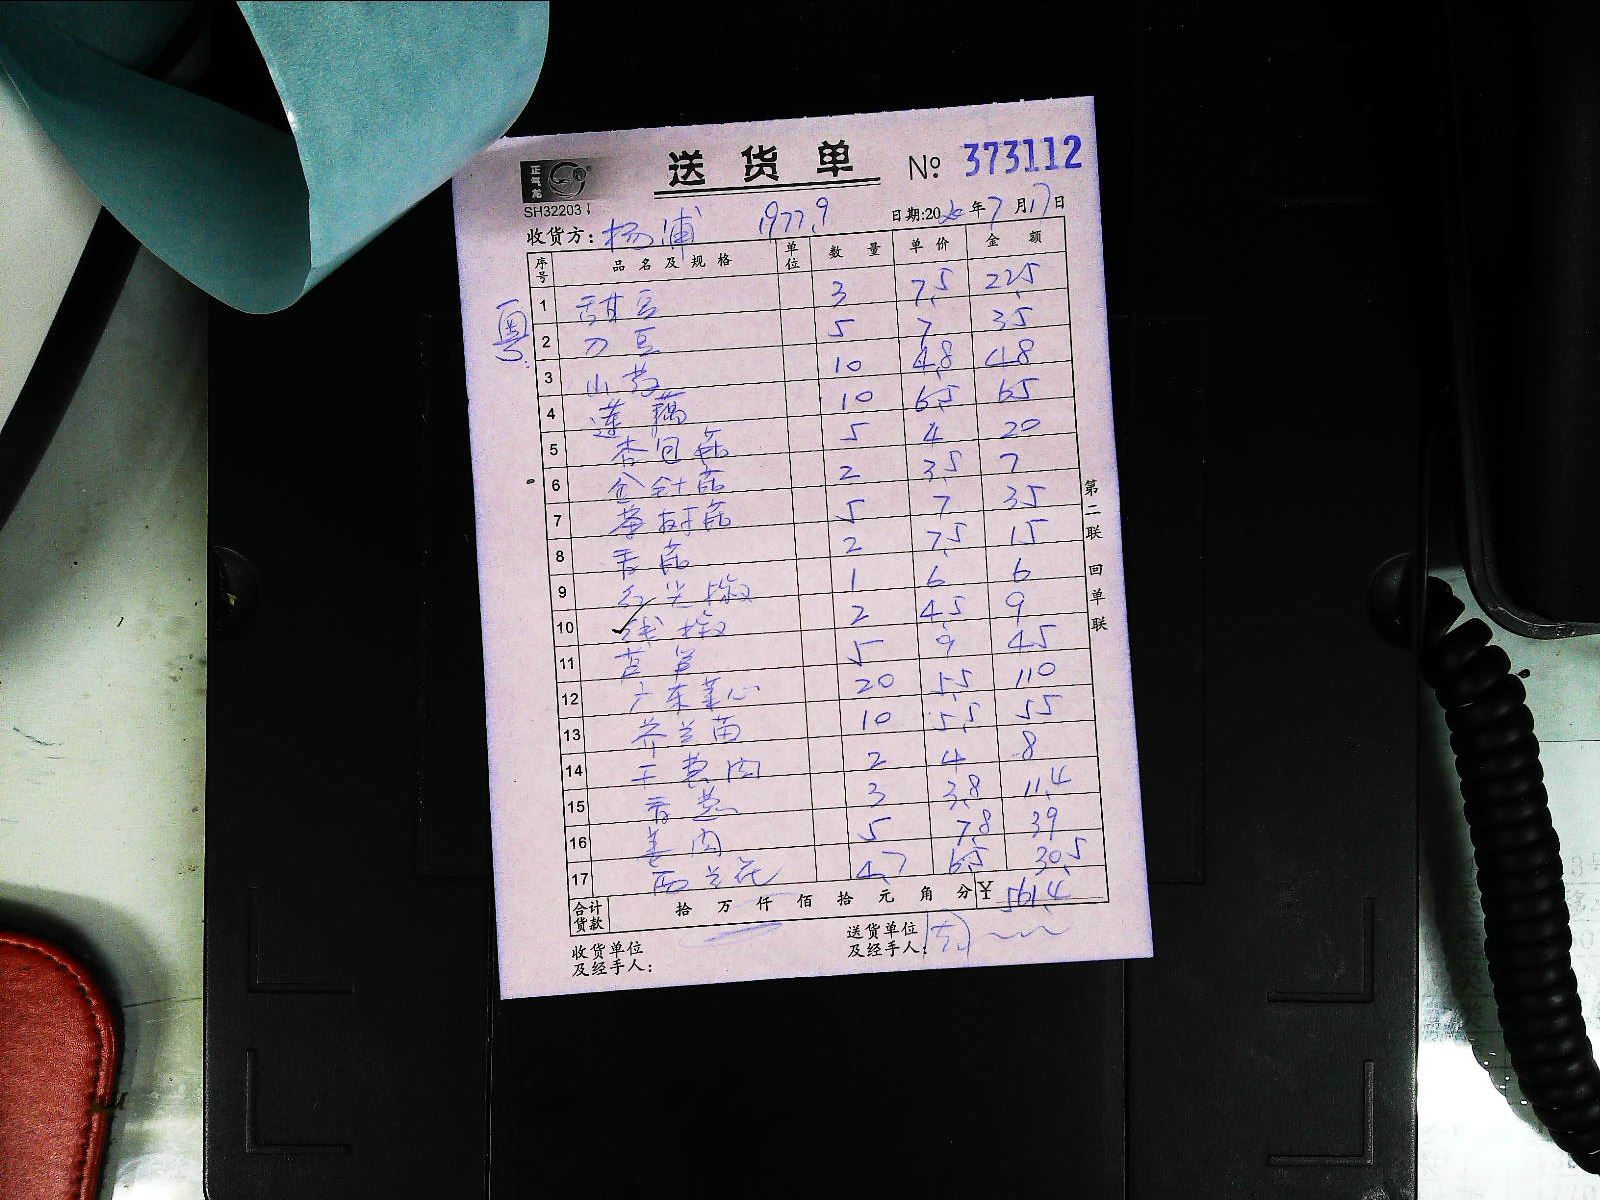 正气龙
送货单 № 373112
SH32203
收货方: 杨浦 1977.9 日期:2020年7月17日
序号 品名及规格 单位 数量 单价 金额
粤
1 甜豆 3 7.5 22.5
2 刀豆 5 7 35
3 山药 10 4.8 48
4 莲藕 10 6.5 65
5 杏包菇 5 4 20
6 金针菇 2 3.5 7
7 茶树菇 5 7 35
8 香菇 2 7.5 15
9 红尖椒 1 6 6
10 线椒 2 4.5 9
11 芦笋 5 9 45
12 广东菜心 20 5.5 110
13 芥兰苗 10 5.5 55
14 王葱肉 2 4 8
15 香葱 3 3.8 11.4
16 姜肉 5 7.8 39
17 西兰花 4.7 6.5 30.5
合计货款 拾 万 仟 佰 拾 元 角 分 ¥ 561.4
收货单位及经手人:
送货单位及经手人:
第二联 回单联